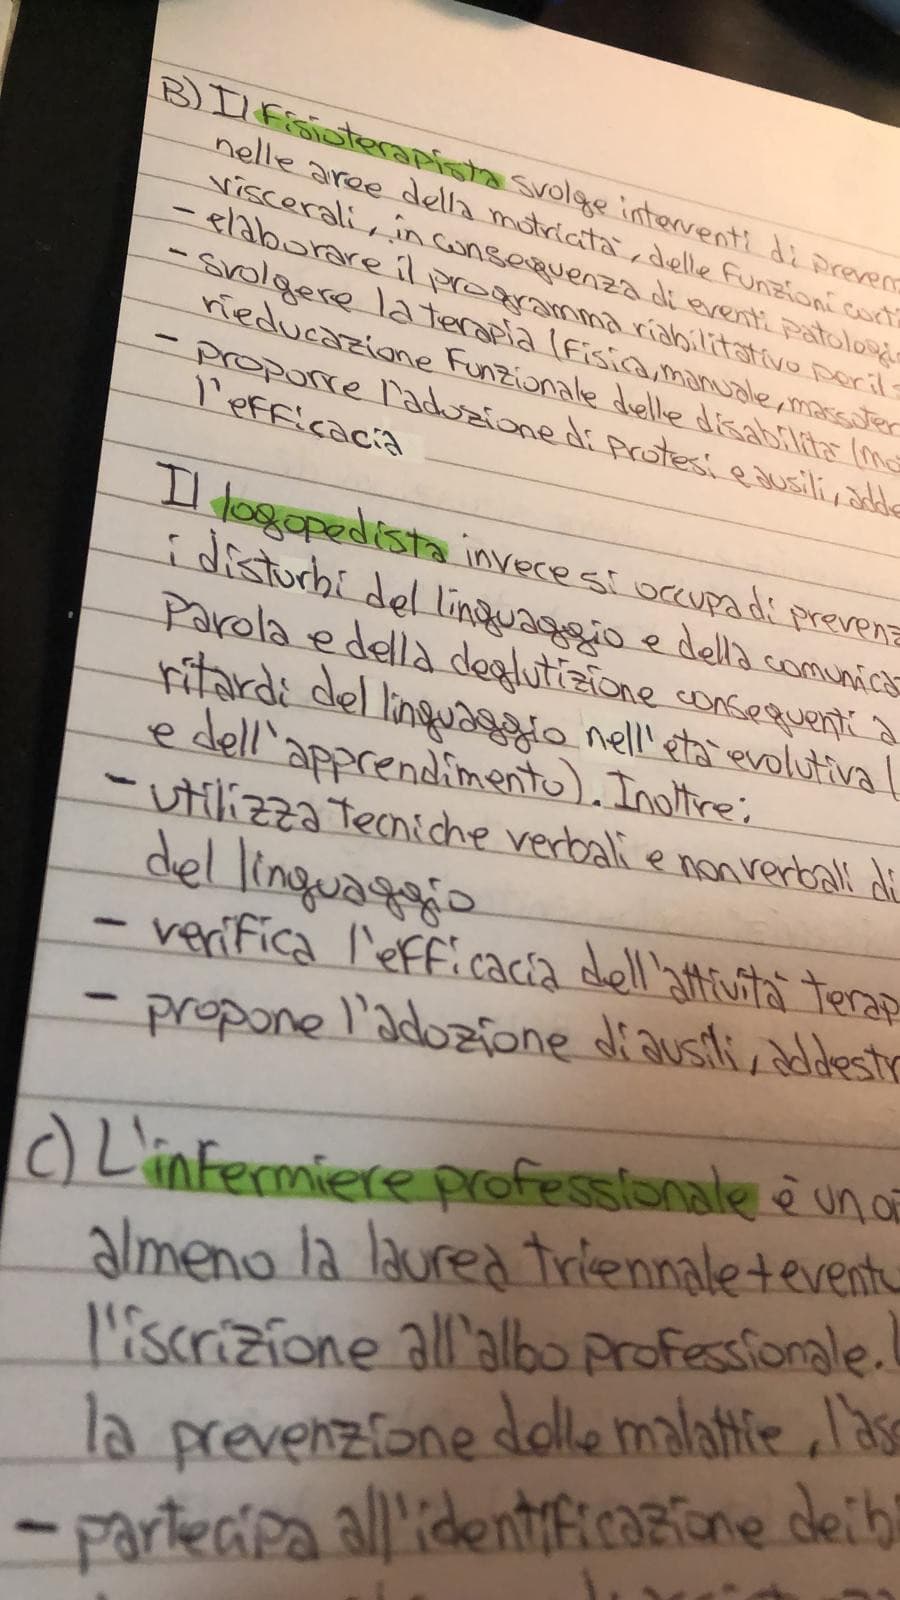 B) Il fisioterapista svolge interventi di preven
nelle aree della motricità, delle funzioni corti
viscerali, in conseguenza di eventi patologi
- elaborare il programma riabilitativo per il
- svolgere la terapia (fisica, manuale, massoter
rieducazione funzionale delle disabilità (mo
- proporre l'adozione di protesi e ausili, adde
l'efficacia
Il logopedista invece si occupa di prevenz
i disturbi del linguaggio e della comunica
Parola e della deglutizione conseguenti a
ritardi del linguaggio nell'età evolutiva (
e dell'apprendimento). Inoltre:
- utilizza tecniche verbali e non verbali di
del linguaggio
- verifica l'efficacia dell'attività terap
- propone l'adozione di ausili, addestr
C) L'infermiere professionale è un o
almeno la laurea triennale + eventu
l'iscrizione all'albo professionale.
la prevenzione delle malattie, l'ass
- partecipa all'identificazione dei b